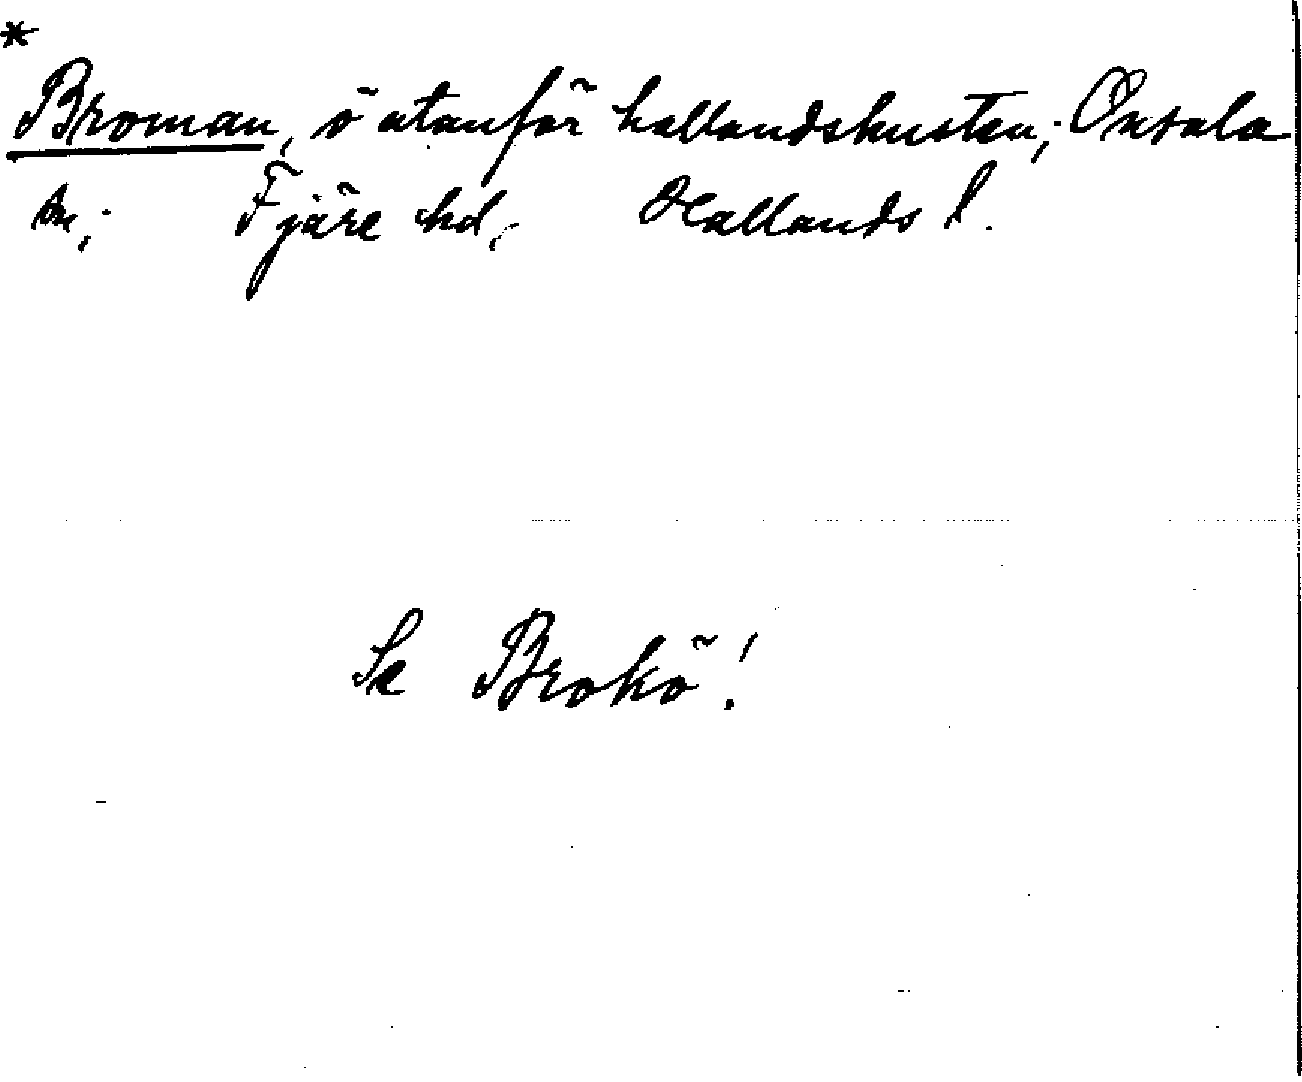 *
Broman, ö utanför hallandskusten; Onsala
sn; Fjäre hd, Hallands l.
Se Brokö!